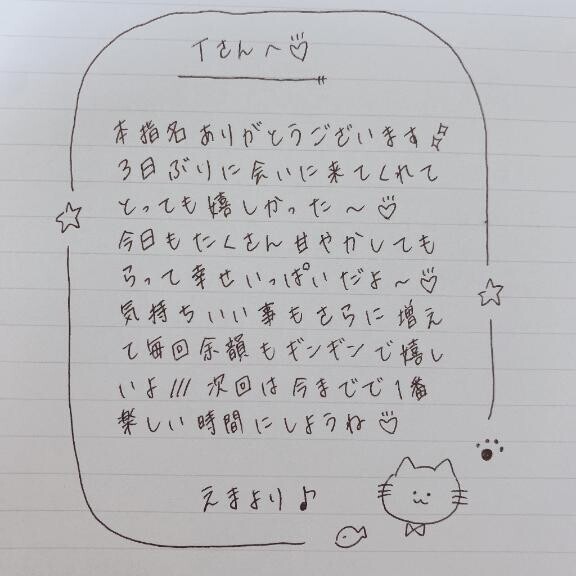 Tさんへ♡
本指名ありがとうございます
3日ぶりに会いに来てくれて
とっても嬉しかった〜♡
今日もたくさん甘やかしても
らって幸せいっぱいだよ〜♡
気持ちいい事もさらに増え
て毎回余韻もギンギンで嬉し
いよ/// 次回は今までで1番
楽しい時間にしようね♡
えまより♪